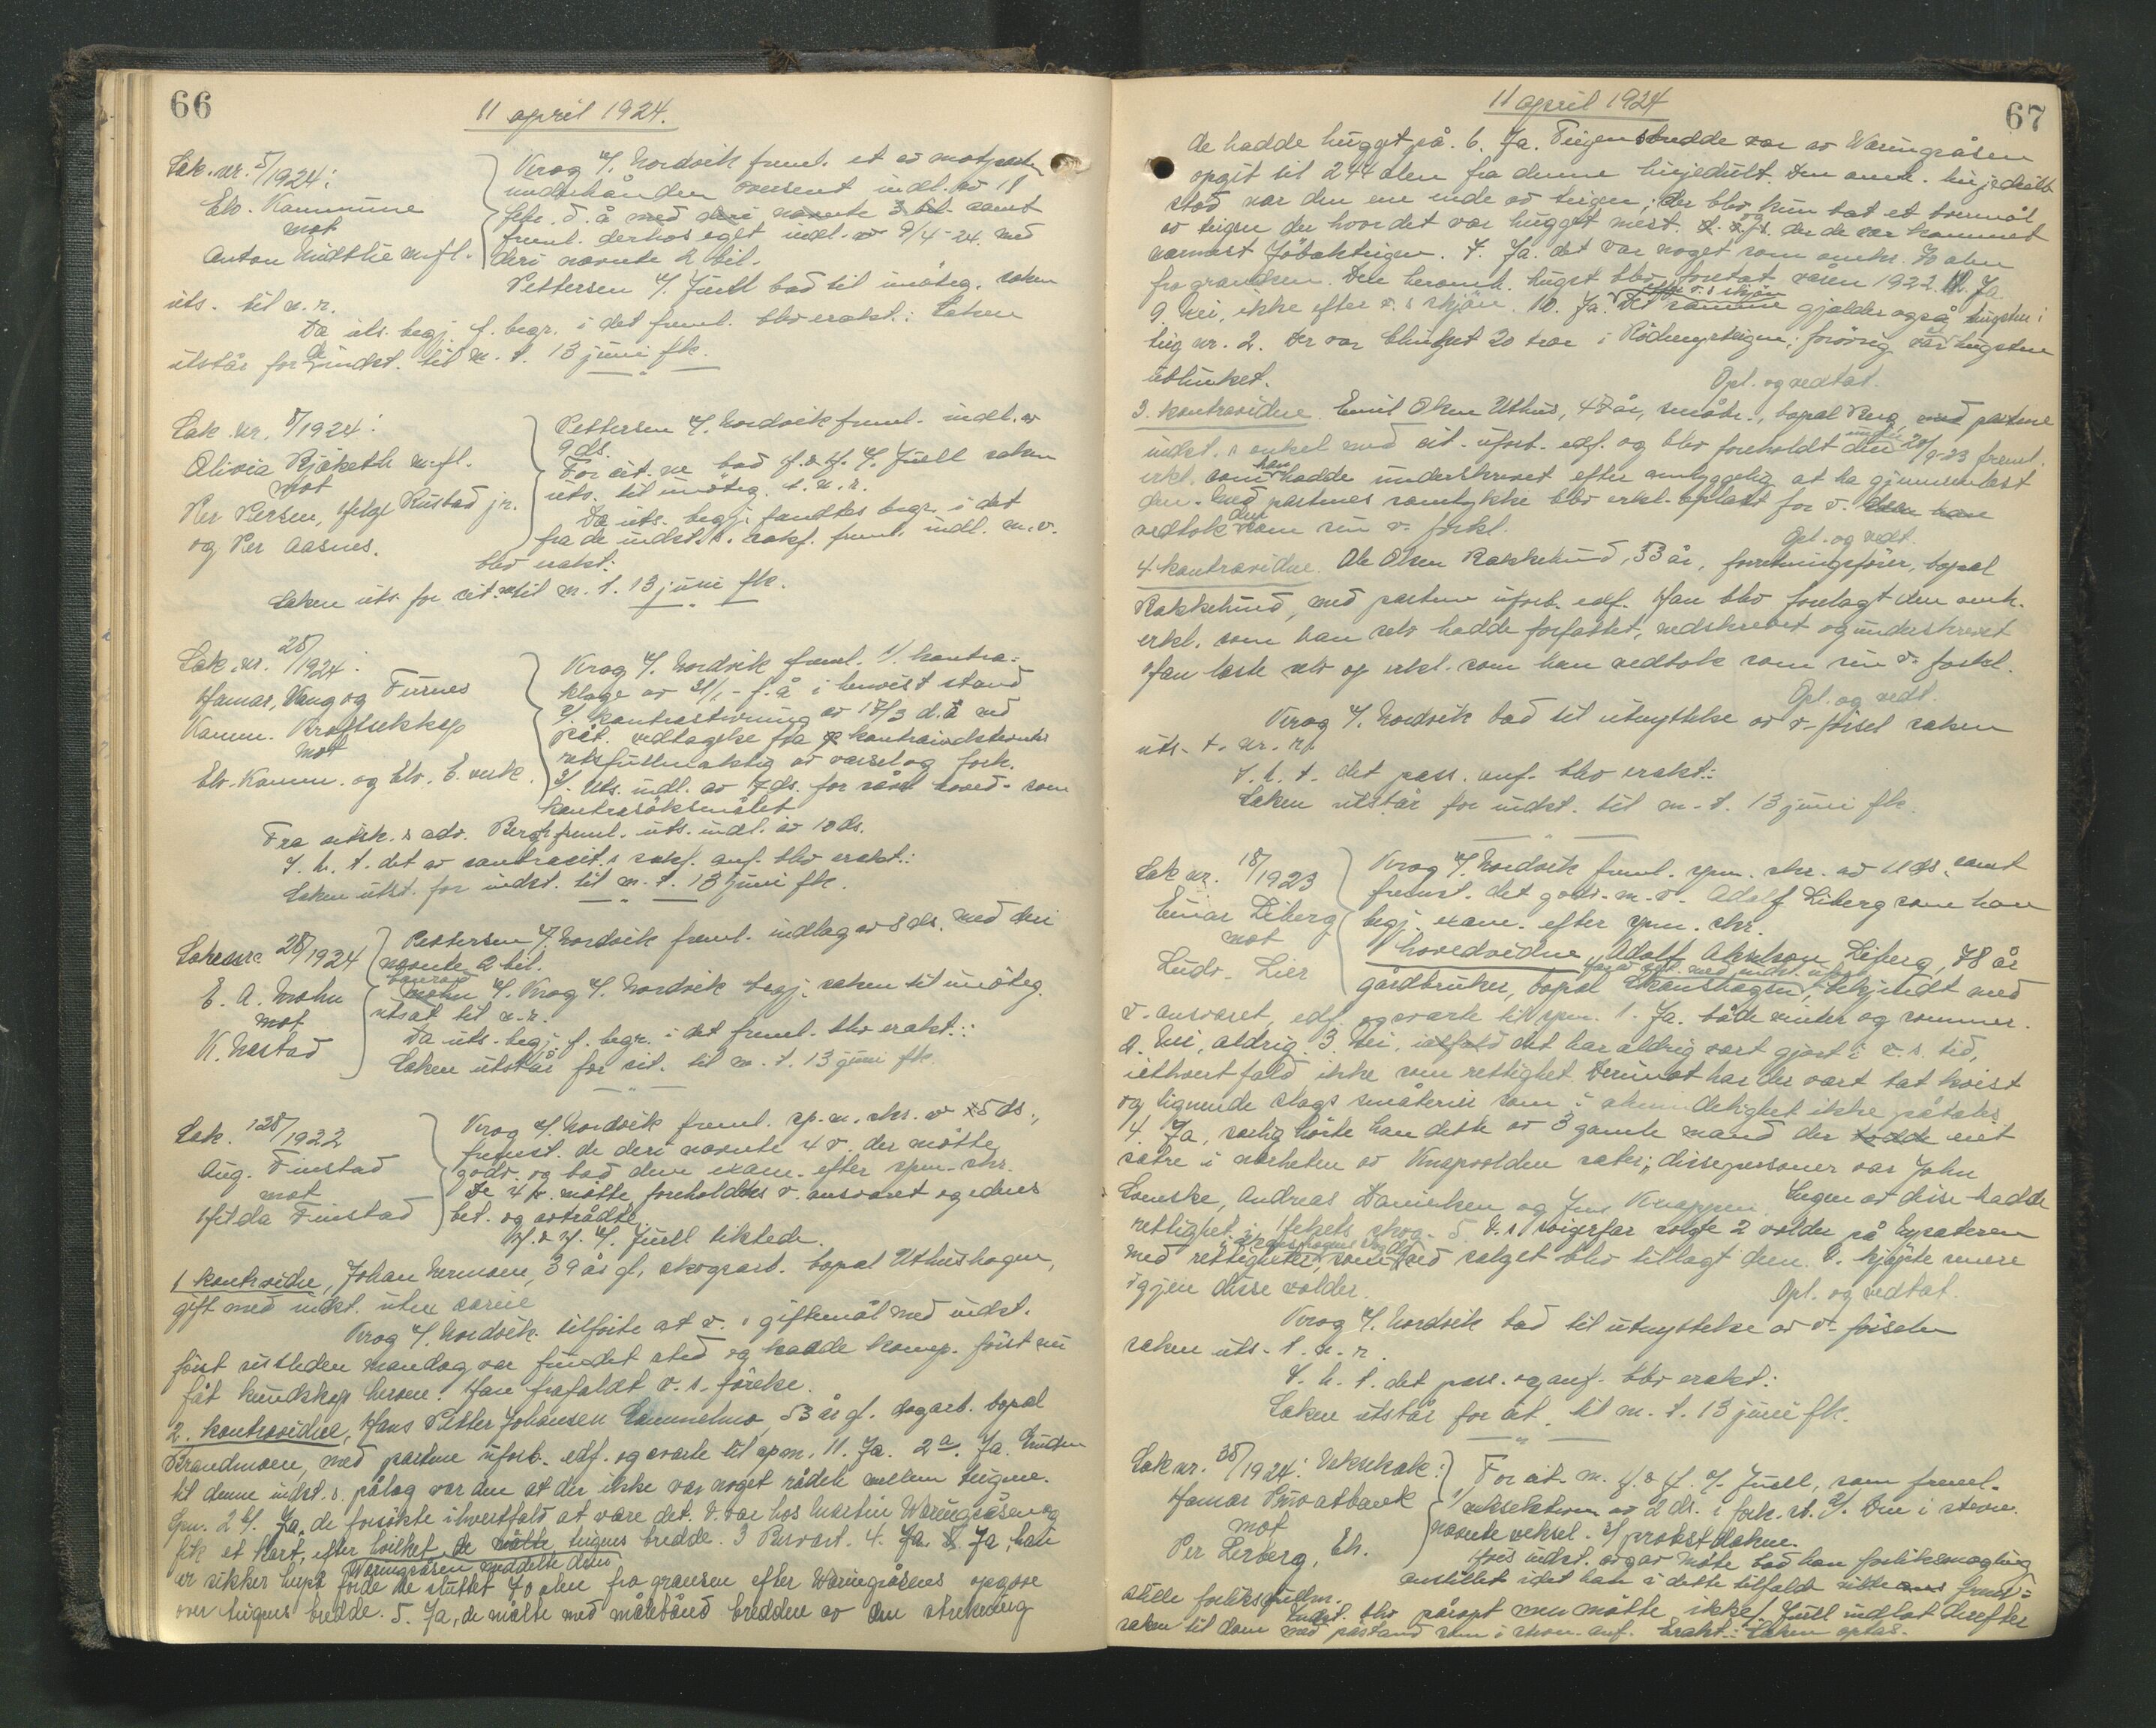 66
11 april 1924.
Sak. nr. 5/1924:
Elv. Kommune
mot
Anton Midtlie m.fl.
Krog v/ Nordvik freml. et av motparten
underhånden oversent indl. av 18
febr. d. å med deri nævnte 3 bil. samt
freml. derhos eget indl. av 9/4-24. med
deri nævnte 2 bil.
Pettersen v/ Juell bad til imøteg. saken
uts. til n. r.
Da uts. begj. f. begr. i det freml. blev erakt.: Saken
utstår for de indst. til m. t. 13 juni fk.
Sak. nr. 8/1924:
Olivia Kjøketh m.fl.
mot
Per Persen, Helge Rustad jr.
og Per Aasnes.
Pettersen v/ Nordvik freml. indl. av
9 ds.
For cit. ne bad H. & H. v/ Juell saken
uts. til imøteg. t. n. r.
Da uts. begj. fandtes begr. i det
fra de indst. s. sakf. freml. indl. m. v.
blev erakt:
Saken uts. for cit. til m. t. 13 juni fk.
Sak. nr. 28/1924:
Hamar, Vang og Furnes
Komm. Kraftselskap
mot
Elv. Komm. og Elv. E. verk.
Krog v/ Nordvik freml. 1/ kontra-
klage av 31/1 - f. å i henvist stand
2/ kontrastevning av 18/3 d. å med
påt. vedtagelse fra kontraindstevnte
retsfuldmæktig av varsel og fork.
3/ Uts. indl. av 7 ds. for såvel hoved- som
kontrasøksmålet
Fra citsk. s adv. Bergh freml. uts. indl. av 10 ds.
I. h. t. det av contracit. s sakf. anf. blev erakt.:
Saken utst. for indst. til m. t. 13 juni fk.
Sak nr. 28/1924
E. A. Mohn
mot
K. Nestad
Pettersen v/ Nordvik freml. indlæg av 8 ds. med deri
nævnte 2 bil.
Mohn v/ Krog v/ Nordvik begj. saken til imøteg.
utsat til n. r.
Da uts. begj. f. begr. i det freml. blev erakt.:
Saken utstår for cit. til m. t. 13 juni fk.
Sak. 128/1922
Aug. Finstad
mot
Hilda Finstad
Krog v/ Nordvik freml. sp. m. skr. av 5 ds.,
fremst. de deri nævnte 4 v. der møtte
godv. og bad dem exam. efter spm. skr.
De 4 v. møtte, foreholdtes v. ansvaret og edens
bet. og avtrådte.
H. & H. v/ Juell tilstede.
1 kontravidne, Johan Hermoen, 39 år gl, skogsarb. bopæl Uthushagen,
gift med indst. uten
Krog v/ Nordvik tilføite at v. s giftemål med indst.
først sistleden mandag var fundet sted og hadde komp. først nu
fåt kundskap herom. Han frafaldt v. s. førelse.
2. kontravidne, Hans Petter Johansen Lammelmo, 53 år gl. dagarb. bopæl
Strandmoen, med partene ubesl. edf. og svarte til spm. 11. Ja. 2 a. Ja. Grunden
til denne indst. s. pålæg var den at der ikke var noget rådele mellem teigene.
Spm. 2 b. Ja, de forsøkte ihvertfald at være det. V. var hos Martin Waringsåsen og
fik et kart, efter hvilket de målte teigens bredde. 3 Besvart. 4. Ja Ja, han
Waringsåsen meddelte dem
er sikker herpå fordi de sluttet 70 alen fra grænsen efter Waringsåsens opgave
over teigens bredde. 5. Ja, de målte med målebånd bredden av den strekning
67
11 april 1924
de hadde hugget på. 6. Ja. Teigens bredde var av Waringsåsen
opgit til 244 alen fra denne linjedult. Den omh. linjedult
stod var den ene ende av teigen; der blev kun tat et tvermål
av teigen der hvor det var hugget mest. og der de var kommet
nærmest Jøbakteigen. 7. Ja. det var noget som omtr. 70 alen
fra grænsen. Den heromh. hugst blev foretat våren 1922. 8. Ja.
efter v. s skjøn
9. Nei, ikke efter v. s skjøn. 10. Ja. Det samme gjælder også hugsten i
teig nr. 2. Der var blinket 20 trær i Rødmyrteigen; forøvrig var hugsten
ublinket.
Opl. og vedtat.
3. kontravidne. Emil Olsen Uthus, 47 år, småbr., bopæl Berg, med partene
indst. s onkel med cit. ubesl. edf. og blev foreholdt den under 20/9-23 freml.
erkl. som han hadde underskrevet efter omhyggelig at ha gjennemlæst
den. Med partenes samtykke blev erkl. oplæst for v. som han
vedtok den som sin v. forkl.
Opl. og vedt.
4. kontravidne. Ole Olsen Rakkelund, 33 år, forretningsfører, bopæl
Rakkelund, med partene ubesl. edf. Han blev forelagt den omh.
erkl. som han selv hadde forfattet, nedskrevet og underskrevet
Han læste selv op erkl. som han vedtok som sin v. forkl.
Opl. og vedt.
Krog v/ Nordvik bad til utnyttelse av v. førsel saken
uts. t. n. r.
I. h. t. det pass. anf. blev erakt.:
Saken utstår for indst. til m. t. 13 juni fk.
Sak nr. 18/1923
Einar Liberg
mot
Ludv. Lier
Krog v/ Nordvik freml. spm. skr. av 11 ds. samt
fremst. det godv. m. v. Adolf Liberg som han
begj. exam. efter spm. skr.
1 hovedvidne, Adolf Akselson Liberg, 78 år
gårdbruker, bopæl Skanshagen, bekjendt med
v. ansvaret, edf. og svarte til spm. 1. Ja. både vinter og sommer.
2. Nei, aldrig. 3. Nei, det har aldrig vært gjort i v. s. tid,
iethvert fald ikke som rettighet. Derimot har der vært tat kvist
og lignende slags småterier som i almindelighet ikke påtales
4. Ja, særlig hørte han dette av 3 gamle mænd der eiet
sætre i nærheten av Knapvolden sæter; disse personer var John
Svenske, Andreas Danielsen og Jens Knappen. Ingen av disse hadde
rettighet i skog. 5. V. s svigerfar solgte 2 volder på Lysæteren
med rettigheter som ved salget blev tillagt dem. V. kjøpte senere
igjen disse volder.
Opl. og vedtat.
Krog v/ Nordvik bad til utnyttelse av v. førselen
saken uts. t. n. r.
I. h. t. det pass. og anf. blev erakt:
Saken utstår for cit. til m. t. 13 juni fk.
Sak nr. 38/1924: Vekselsak:
Hamar Privatbank
mot
Per Lerberg, Eh.
For cit. m. H. & H. v/ Juell, som freml.
1/ vekselstevn. av 2 ds. i fork. st. 2/. Den i stevn.
nævnte veksel. 3/ protestdokum.
Hvis indst. avgav møte bad han forliksmægling
anstillet idet han i dette tilfælde vilde frem-
stille forliksbudm.
Indst. blev påropt men møtte ikke. Juell indlot derefter
saken til dom med påstand som i stevn. anf. Erakt: Saken optas.